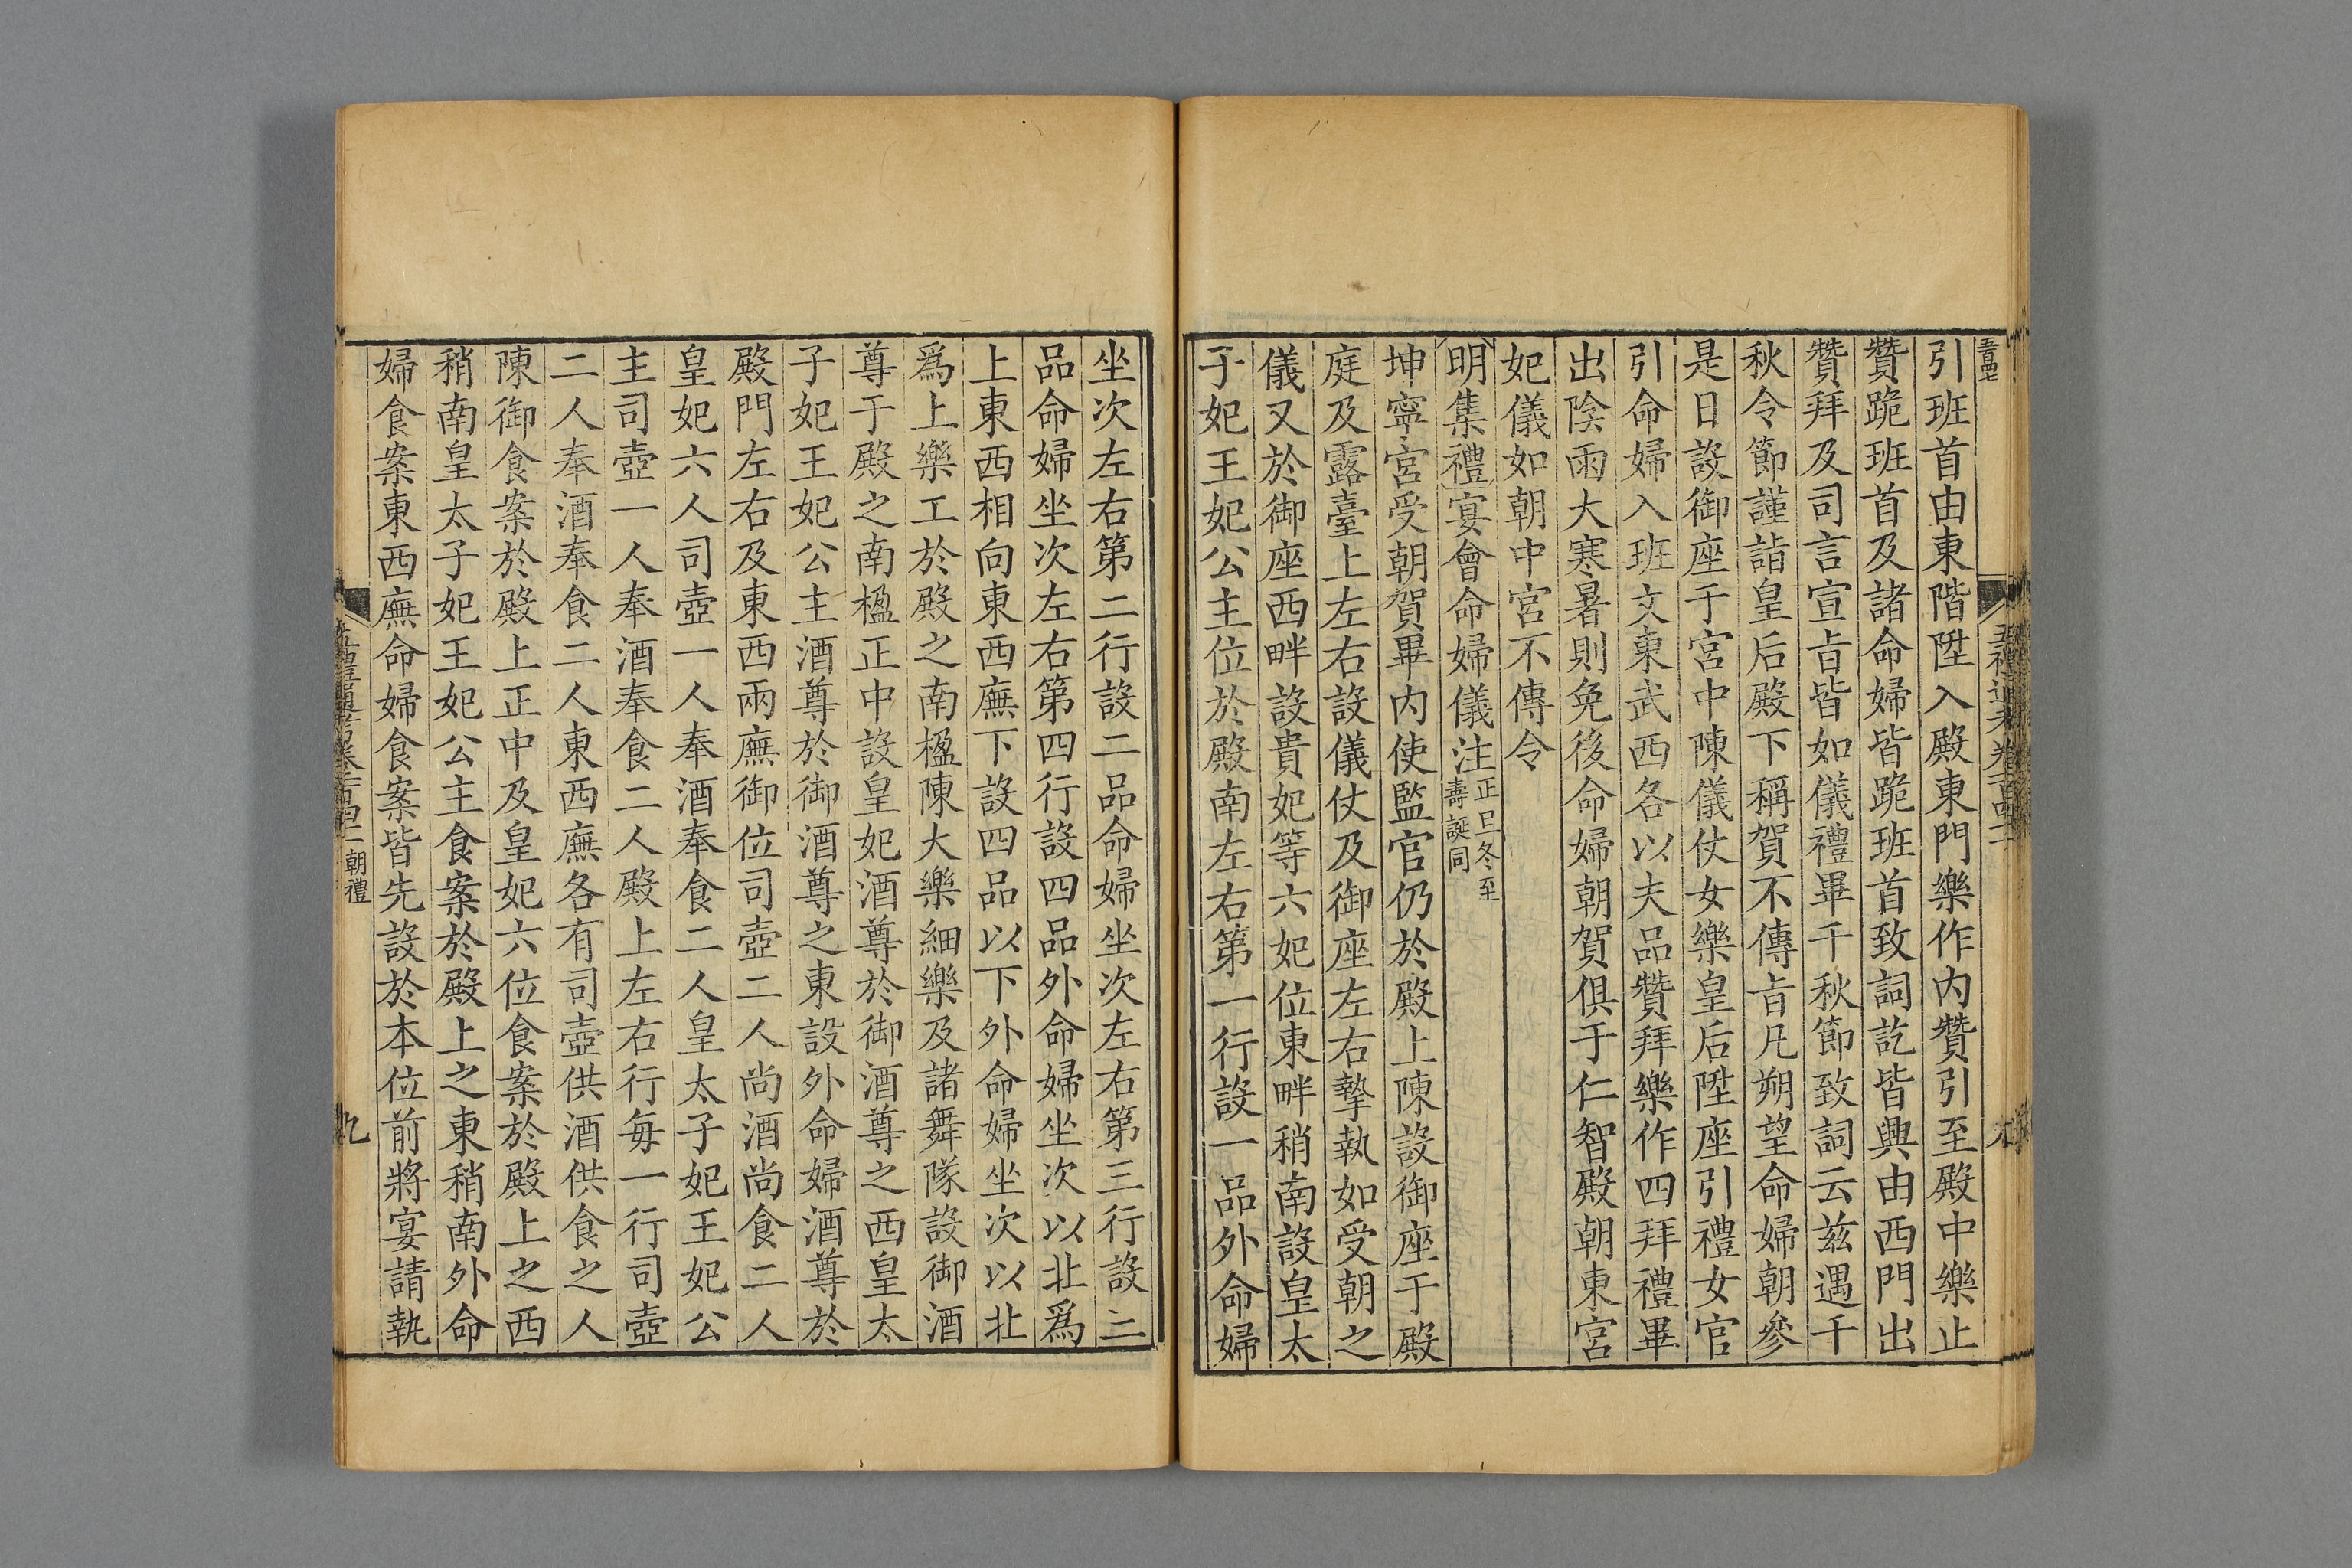 引班首由東階陞入殿東門樂作内贊引至殿中樂止
贊跪班首及諸命婦皆跪班首致詞訖皆興由西門出
贊拜及司言宣㫖皆如儀禮畢千秋節致詞云兹遇千
秋令節謹詣皇后殿下稱賀不傳㫖凡朔望命婦朝參
是日設御座于宮中陳儀仗女樂皇后陞座引禮女官
引命婦入班文東武西各以夫品贊拜樂作四拜禮畢
出陰雨大寒暑則免後命婦朝賀俱于仁智殿朝東宮
妃儀如朝中宮不傳令
明集禮宴會命婦儀注正旦冬至壽誕同
坤寧宮受朝賀畢内使監官仍於殿上陳設御座于殿
庭及露臺上左右設儀仗及御座左右摯執如受朝之
儀又於御座西畔設貴妃等六妃位東畔稍南設皇太
子妃王妃公主位於殿南左右第一行設一品外命婦
坐次左右第二行設二品命婦坐次左右第三行設三
品命婦坐次左右第四行設四品外命婦坐次以北爲
上東西相向東西廡下設四品以下外命婦坐次以北
爲上樂工於殿之南楹陳大樂細樂及諸舞隊設御酒
尊于殿之南楹正中設皇妃酒尊於御酒尊之西皇太
子妃王妃公主酒尊於御酒尊之東設外命婦酒尊於
殿門左右及東西兩廡御位司壺二人尚酒尚食二人
皇妃六人司壺一人奉酒奉食二人皇太子妃王妃公
主司壺一人奉酒奉食二人殿上左右行每一行司壺
二人奉酒奉食二人東西廡各有司壺供酒供食之人
陳御食案於殿上正中及皇妃六位食案於殿上之西
稍南皇太子妃王妃公主食案於殿上之東稍南外命
婦食案東西廡命婦食案皆先設於本位前將宴請執
朝禮
九